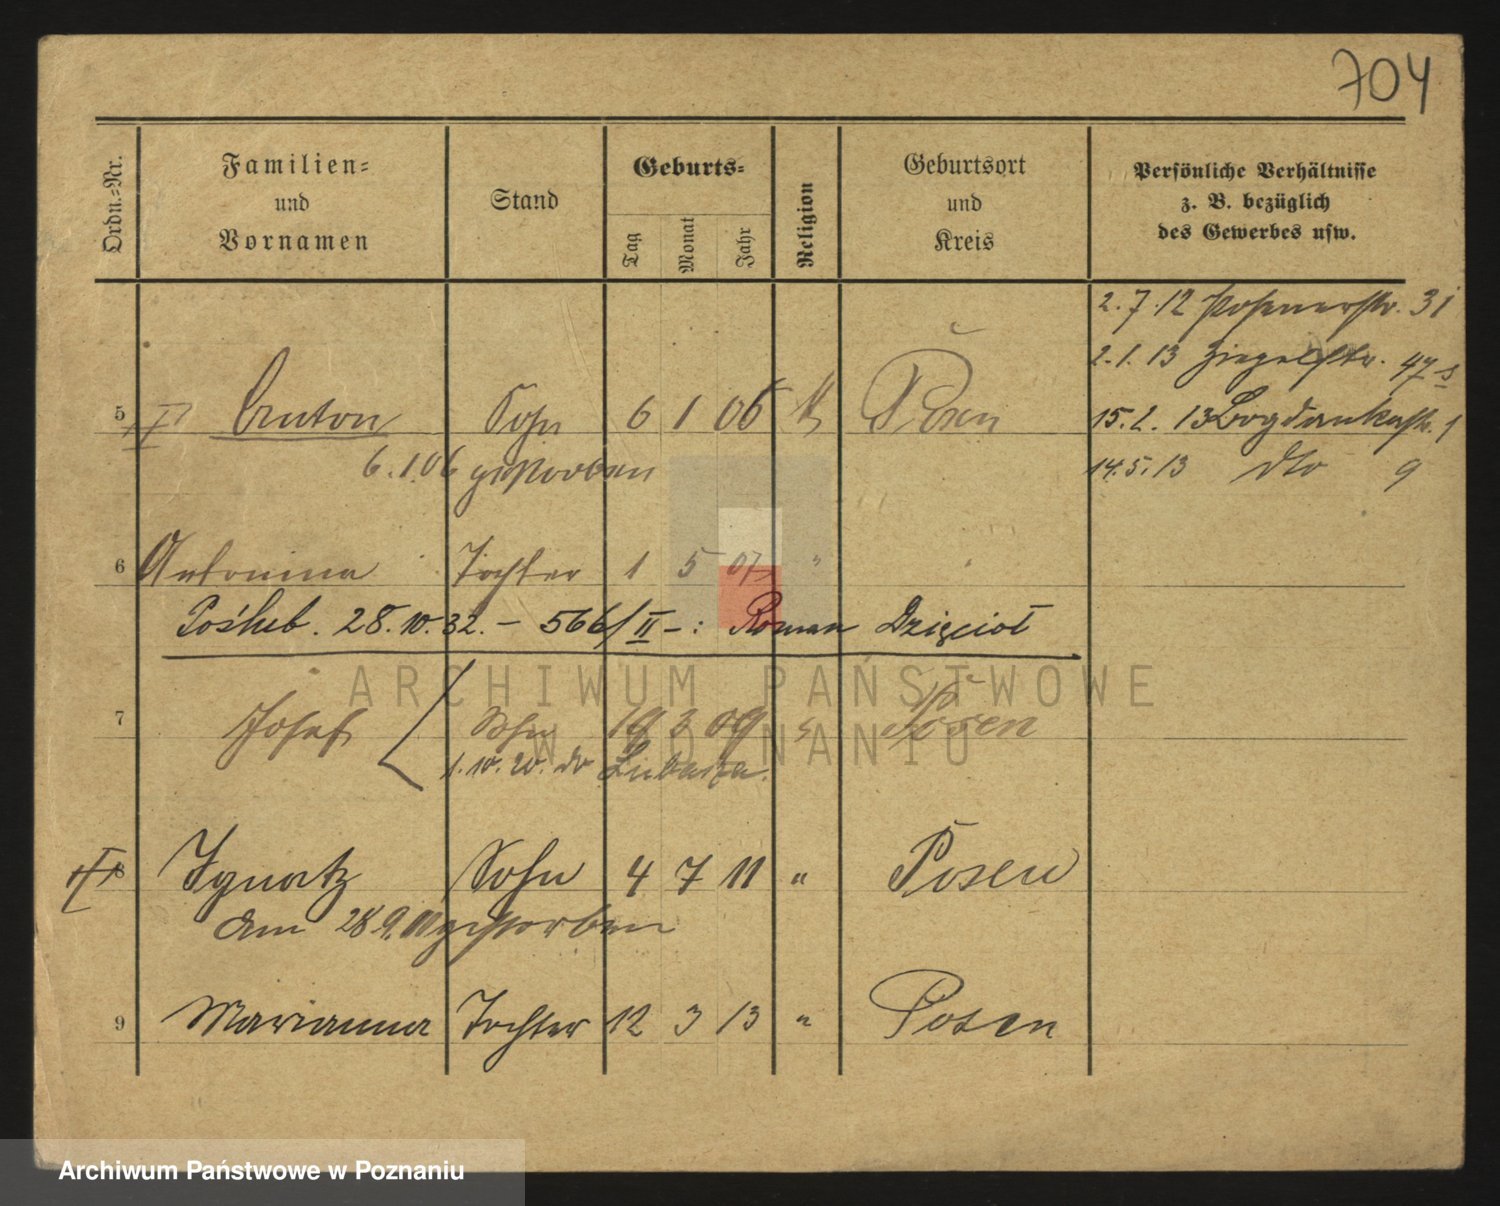 704
Ordn.-Nr.
Familien- und Vornamen
Stand
Geburts-
Tag Monat Jahr
Religion
Geburtsort und Kreis
Persönliche Verhältnisse z. B. bezüglich des Gewerbes usw.
2.7.12 Posenerstr. 31
2.1.13 Ziegelstr. 47
15.2.13 Bogdankastr. 1
14.5.13 dto 9
5 Anton Sohn 6 1 06 k Posen
6.1.06 gestorben
6 Antonina Tochter 1 5 07 "
Poślub. 28.10.32. – 566/II –: Roman Dzięcioł
7 Josef Sohn 19 3 09 Posen
1.10.20. do Lubasza.
8 Ignatz Sohn 4 7 11 " Posen
am 28.9.11 gestorben
9 Marianna Tochter 12 3 13 " Posen
ARCHIWUM PAŃSTWOWE
W POZNANIU
Archiwum Państwowe w Poznaniu